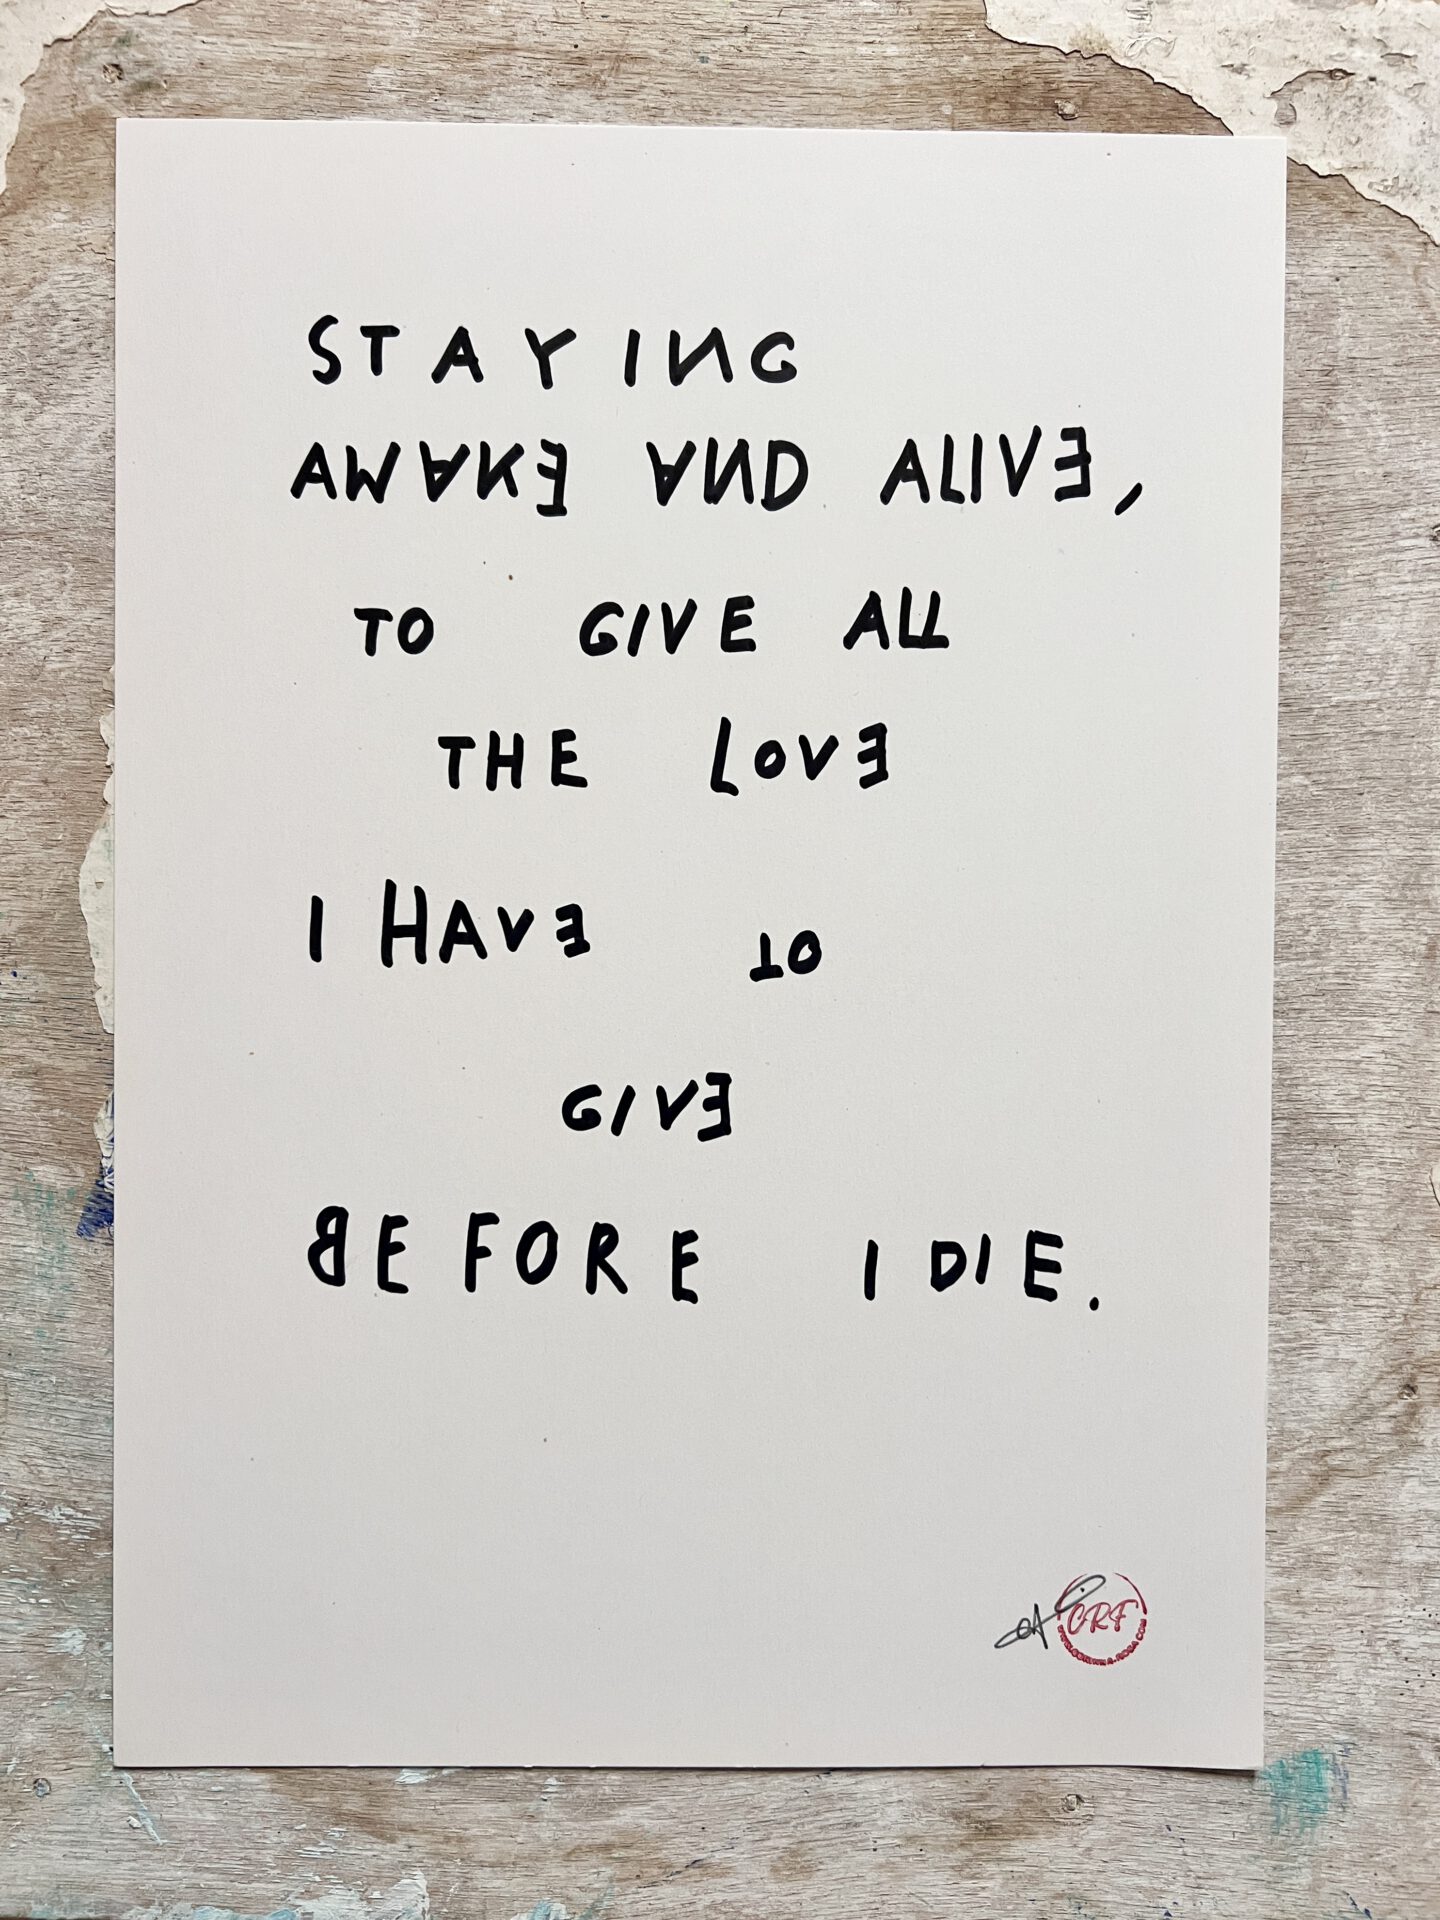 STAYING
AWAKE AND ALIVE,
TO GIVE ALL
THE LOVE
I HAVE TO
GIVE
BEFORE I DIE.
CRF